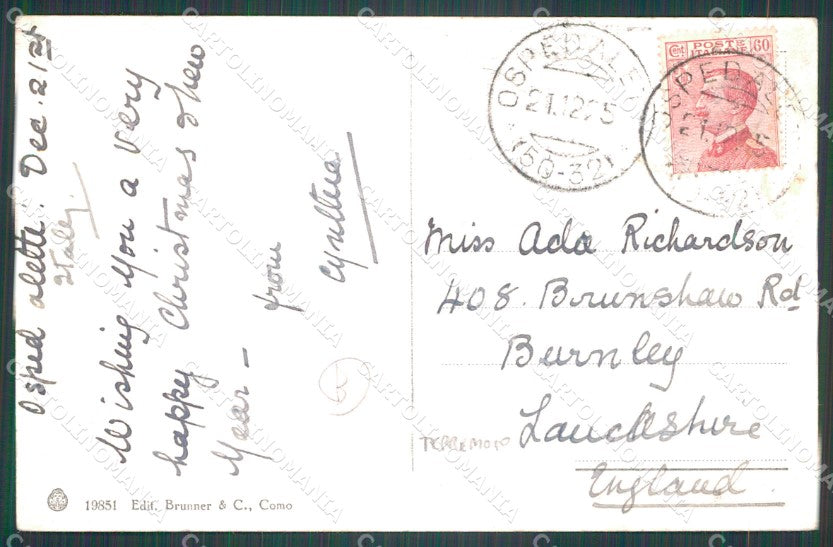 Osped aletti. Dec. 21st
Italy.
Wishing you a very
happy Christmas & New
Year –
from
Cynthia
19851 Edit. Brunner & C., Como
OSPEDALE
21.12.25
(50-32)
Cent POSTE ITALIANE 60
OSPEDALE
Miss Ada Richardson
408. Brunshaw Rd
Burnley
Lancashire
England
TERREMOTO
CARTOLINOMANIA